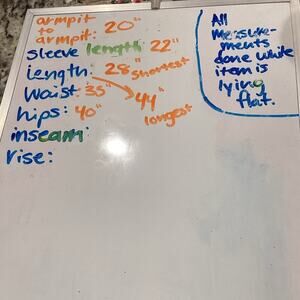 armpit
to
armpit: 20"
sleeve length 22"
length 28" shortest
44" longest
waist: 35"
hips: 40"
inseam:
rise:
All
measure-
ments
done while
item is
lying
flat.